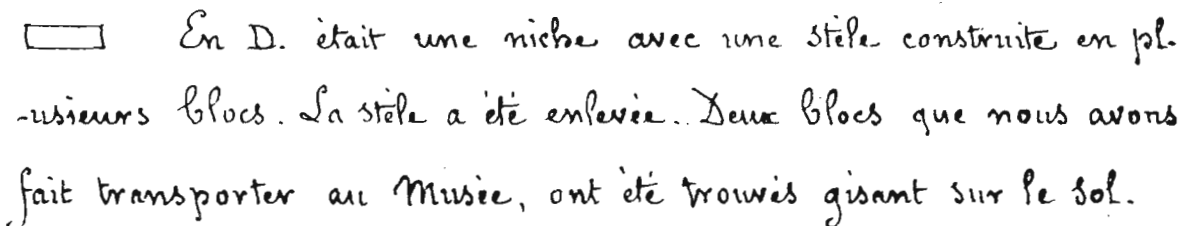 En D. était une niche avec une stèle construite en pl-
-usieurs blocs. La stèle a été enlevée. Deux blocs que nous avons
fait transporter au Musée, ont été trouvés gisant sur le sol.